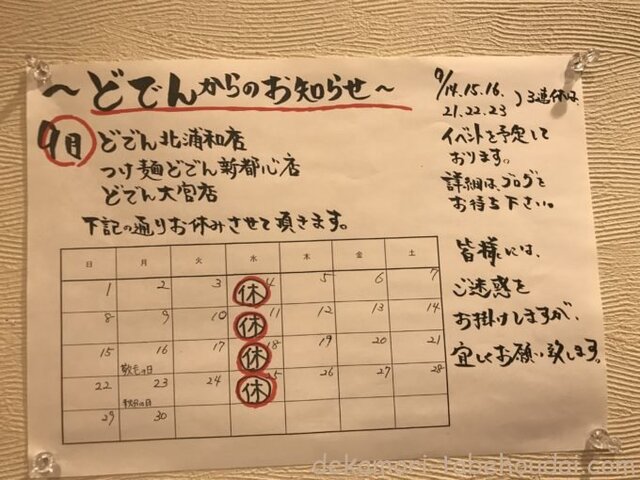 ～どでんからのお知らせ～
9月
どでん北浦和店
つけ麺どでん新都心店
どでん大宮店
下記の通りお休みさせて頂きます。
日 月 火 水 木 金 土
1 2 3 休 4 5 6 7
8 9 10 休 11 12 13 14
15 16 敬老の日 17 休 18 19 20 21
22 23 秋分の日 24 休 25 26 27 28
29 30
9/14.15.16.
21.22.23
)3連休は、
イベントを予定して
おります。
詳細は、ブログを
お待ち下さい。
皆様には、
ご迷惑を
お掛けしますが、
宜しくお願い致します。
dekamori-tabehoudai.com